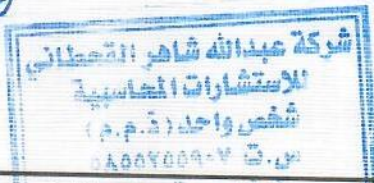 شركة عبدالله شاهر القحطاني
للاستشارات المحاسبية
شخص واحد (ذ.م.م)
س.ت ٥٨٥٥٣٥٥٩٠٧